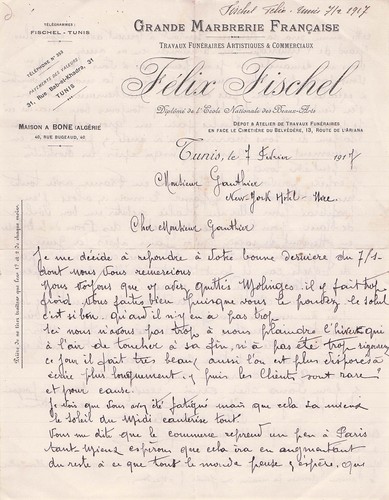 Fischel Félix - Tunis 7/2 1917
TÉLÉGRAMMES:
FISCHEL - TUNIS
GRANDE MARBRERIE FRANÇAISE
TRAVAUX FUNÉRAIRES ARTISTIQUES & COMMERCIAUX
TÉLÉPHONE Nº
31, Rue Bab-el-Khadra, 31
TUNIS
Félix Fischel
Diplômé de l'École Nationale des Beaux-Arts
DÉPÔT & ATELIER DE TRAVAUX FUNÉRAIRES
EN FACE LE CIMETIÈRE DU BELVÉDÈRE, 13, ROUTE DE L'ARIANA
MAISON A BONE (ALGÉRIE)
46, RUE BUGEAUD, 46
Tunis, le 7 Février 1917
Monsieur Gauthier
New-York Hôtel - Nice
Cher Monsieur Gauthier
Je me décide à répondre à votre bonne dernière du 7/1-
dont nous vous remercions.
Nous voyons que vs avez quittés Molinges. il y fait trop
froid. vous faites bien puisque vous le pouvez. le soleil
c'est si bon. quand il n'y en a pas trop.
Ici nous n'avons pas trop à nous plaindre l'hiver qui
à l'air de toucher à sa fin, n'a pas été trop rigoureux
ce jour il fait très beau, aussi l'on est plus disposés à
écrire plus longuement, puis les Clients sont rares
et pour cause.
Je vois que vous avez été fatigué mais que cela va mieux
le Soleil du Midi cautérise tout.
Vous me dite que le commerce reprend un peu à Paris
tant-mieux espérons que cela ira en augmentant
du reste à ce que tout le monde pense, & espère, que